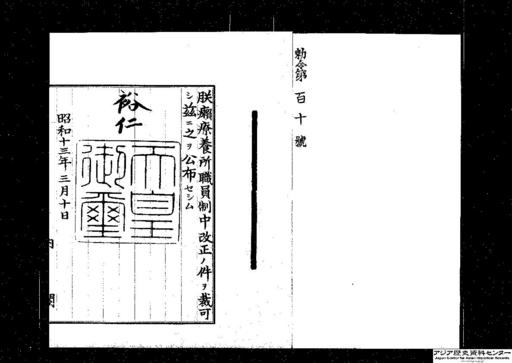 勅令第百十號
朕癩療養所職員制中改正ノ件ヲ裁可
シ茲ニ之ヲ公布セシム
裕仁
天皇
御璽
昭和十三年三月十日
内閣
アジア歴史資料センター
Japan Center for Asian Historical Records